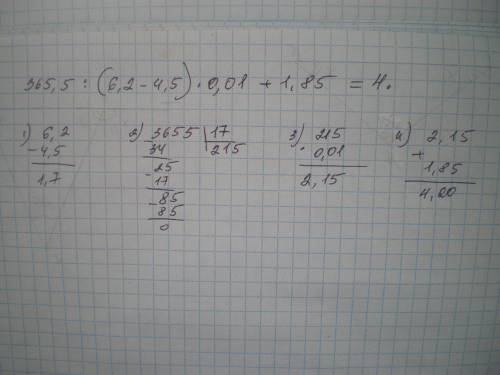 365,5 : (6,2 - 4,5) · 0,01 + 1,85 = 4.
1) 6,2
- 4,5
1,7
2) 3655 | 17
34 215
25
- 17
- 85
85
0
3) 215
· 0,01
2,15
4) 2,15
+
1,85
4,00